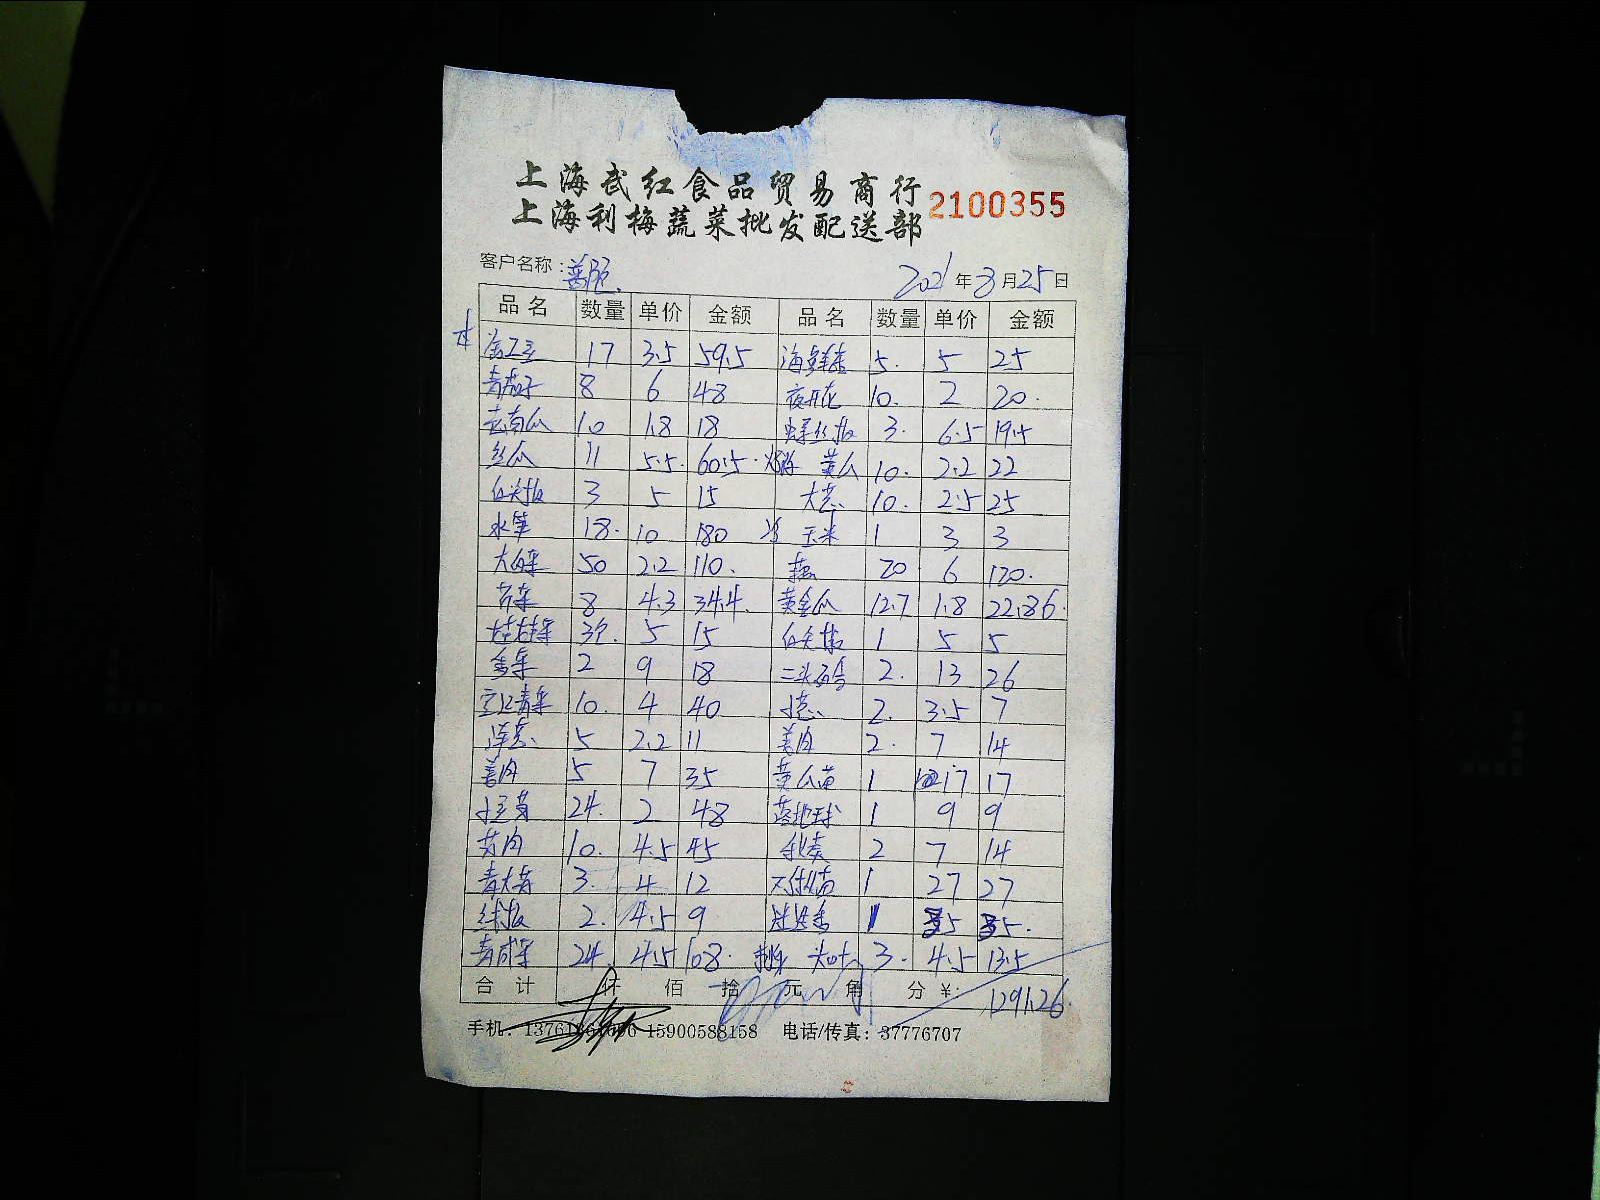 上海武红食品贸易商行
上海利梅蔬菜批发配送部 2100355
客户名称: 2021年3月25日
品名 数量 单价 金额 品名 数量 单价 金额
17 3.5 59.5 海鲜菇 5. 5 25
青茄子 8 6 48 夜开花 10. 2 20.
老南瓜 10 1.8 18 螺丝椒 3. 6.5 19.5
丝瓜 11 5.5. 60.5. 黄瓜 10. 2.2 22
红尖椒 3 5 15 大葱 10. 2.5 25
水笋 18. 10 180 玉米 1 3 3
大白菜 50 2.2 110. 藕 20 6 120.
芹菜 8 4.3 34.4. 黄金瓜 12.7 1.8 22.86.
5 15 红尖椒 1 5 5
2 9 18 2. 13 26
青菜 10. 4 40 小葱 2. 3.5 7
洋葱 5 2.2 11 姜肉 2. 7 14
姜肉 5 7 35 黄瓜苗 1 17 17
24. 2 48 1 9 9
10. 4.5 45 2 7 14
3. 4 12 1 27 27
2. 4.5 9 1 35 35.
24. 4.5 108. 3. 4.5 13.5
合计 仟 佰 拾 元 角 分 ¥: 1291.26.
手机: 15900588158 电话/传真: 37776707